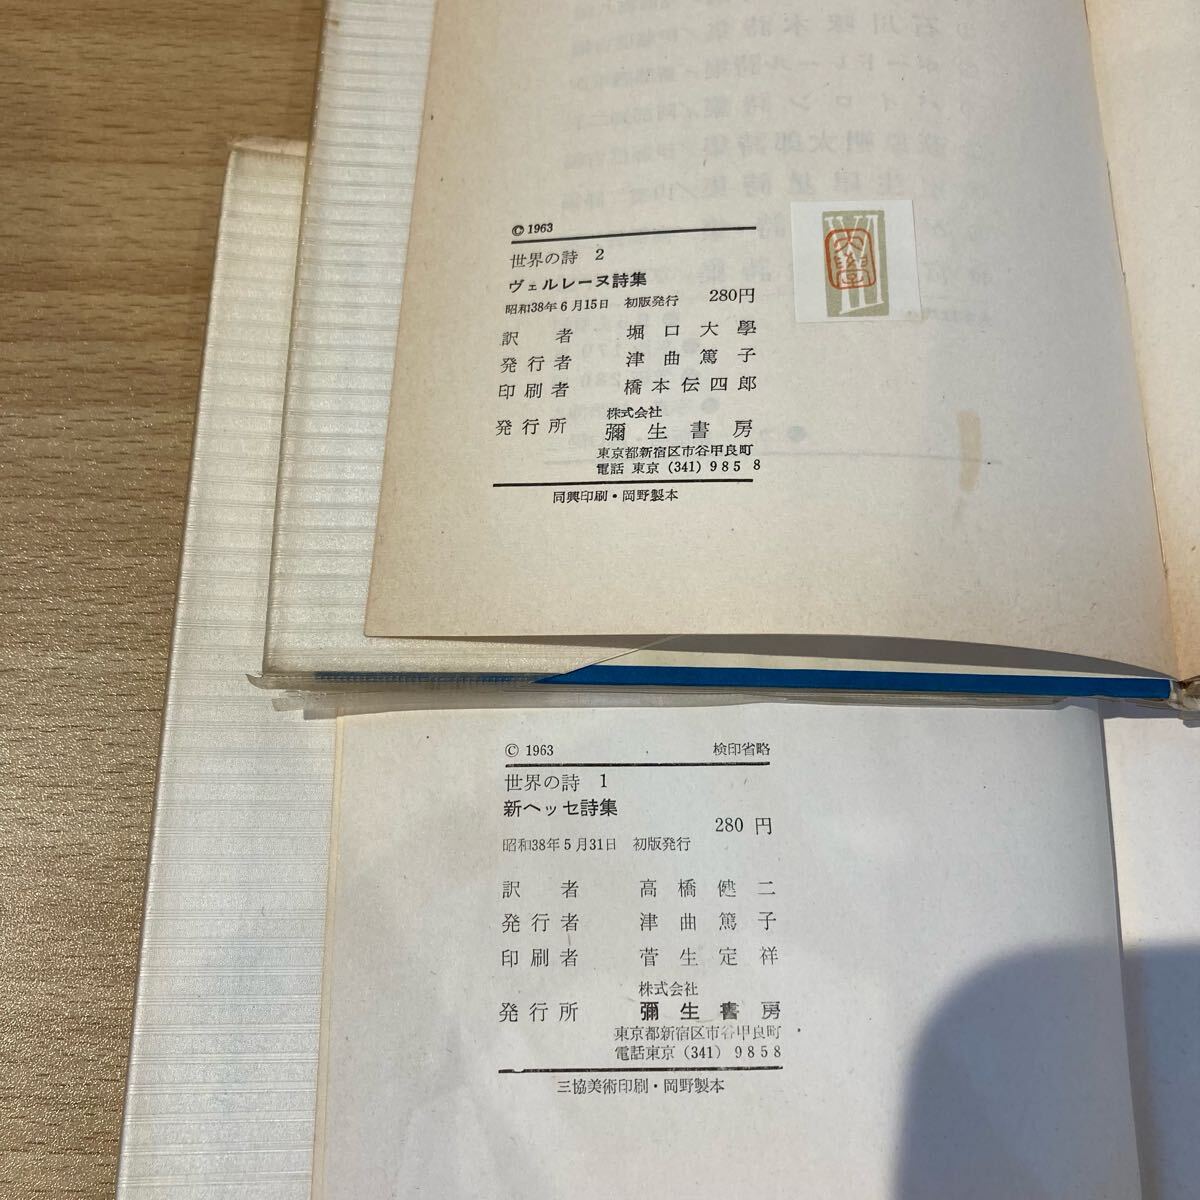 © 1963
世界の詩 2
ヴェルレーヌ詩集
昭和38年6月15日 初版発行 280円
訳者 堀口大學
発行者 津曲篤子
印刷者 橋本伝四郎
株式会社
発行所 彌生書房
東京都新宿区市谷甲良町
電話 東京 (341) 9858
同興印刷・岡野製本
© 1963 検印省略
世界の詩 1
新ヘッセ詩集
280円
昭和38年5月31日 初版発行
訳者 高橋健二
発行者 津曲篤子
印刷者 菅生定祥
株式会社
発行所 彌生書房
東京都新宿区市谷甲良町
電話東京 (341) 9858
三協美術印刷・岡野製本